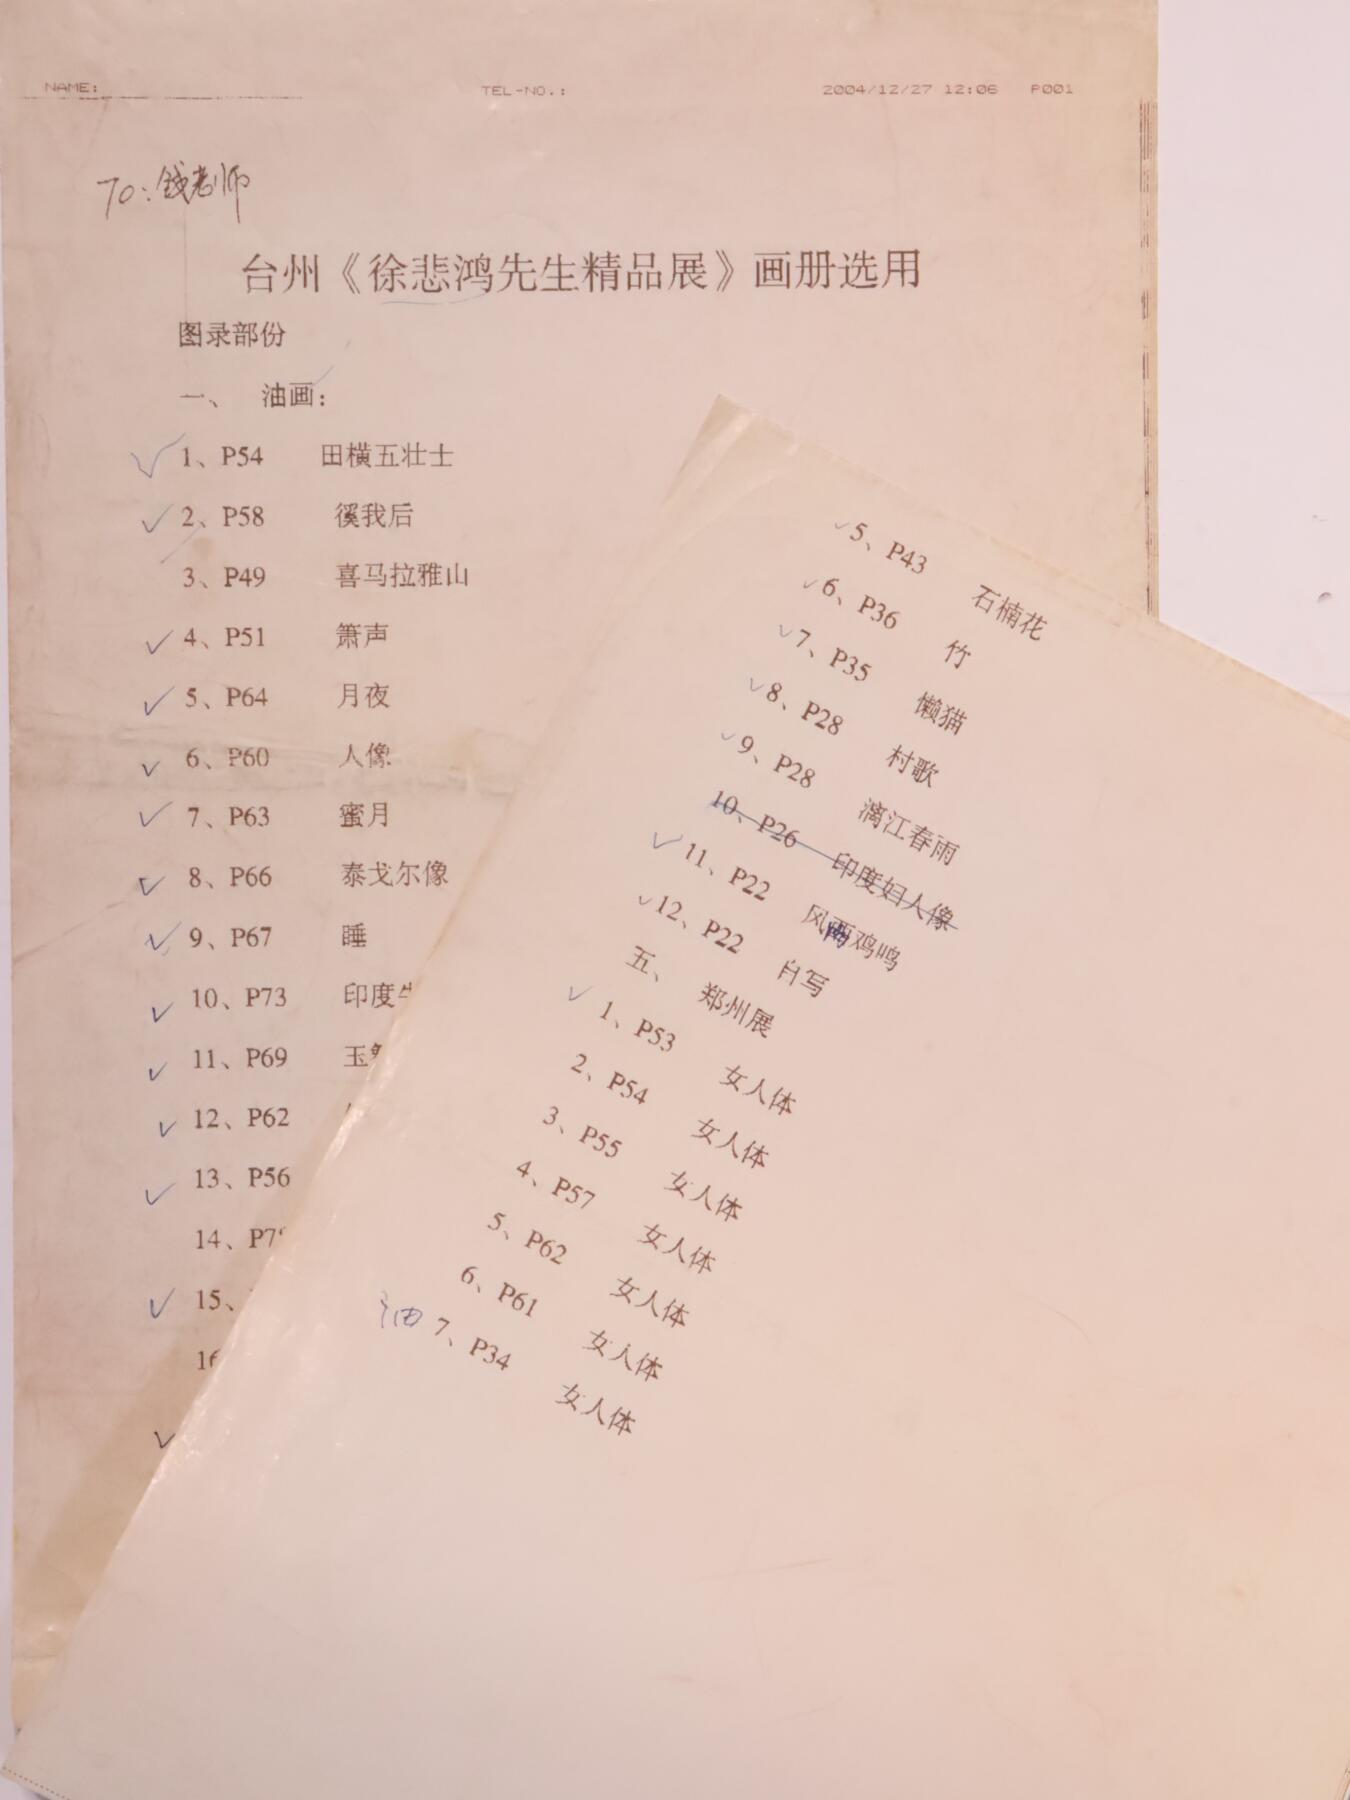 NAME: TEL-NO.: 2004/12/27 12:06 P001
TO: 钱老师
台州《徐悲鸿先生精品展》画册选用
图录部份
一、 油画：
1、P54 田横五壮士
2、P58 徯我后
3、P49 喜马拉雅山
4、P51 箫声
5、P64 月夜
6、P60 人像
7、P63 蜜月
8、P66 泰戈尔像
9、P67 睡
10、P73 印度
11、P69 玉
12、P62
13、P56
14、
15、
5、P43 石楠花
6、P36 竹
7、P35 懒猫
8、P28 村歌
9、P28 漓江春雨
10、P26 印度妇人像
11、P22 风雨鸡鸣
12、P22 自写
五、 郑州展
1、P53 女人体
2、P54 女人体
3、P55 女人体
4、P57 女人体
5、P62 女人体
6、P61 女人体
油 7、P34 女人体